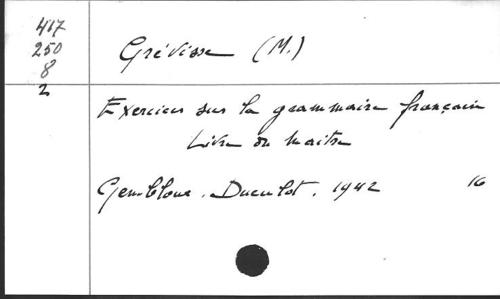 417
250
8
2
Grévisse (M.)
Exercices sur la grammaire française
Livre du Maître
Gembloux. Duculot. 1942 16